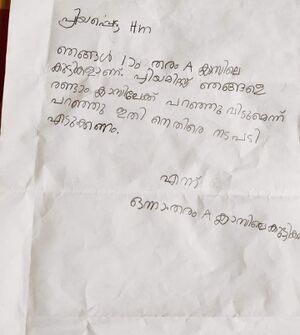 പ്രിയപ്പെട്ട Hm
ഞങ്ങൾ 1ാം തരം A ക്ലാസിലെ
കുട്ടികളാണ്. പ്രിയമിസ്സ് ഞങ്ങളെ
രണ്ടാം ക്ലാസിലേക്ക് പറഞ്ഞു വിടുമെന്ന്
പറഞ്ഞു ഇതി നെതിരെ നടപടി
എടുക്കണം.
എന്ന്
ഒന്നാംതരം A ക്ലാസിലെ